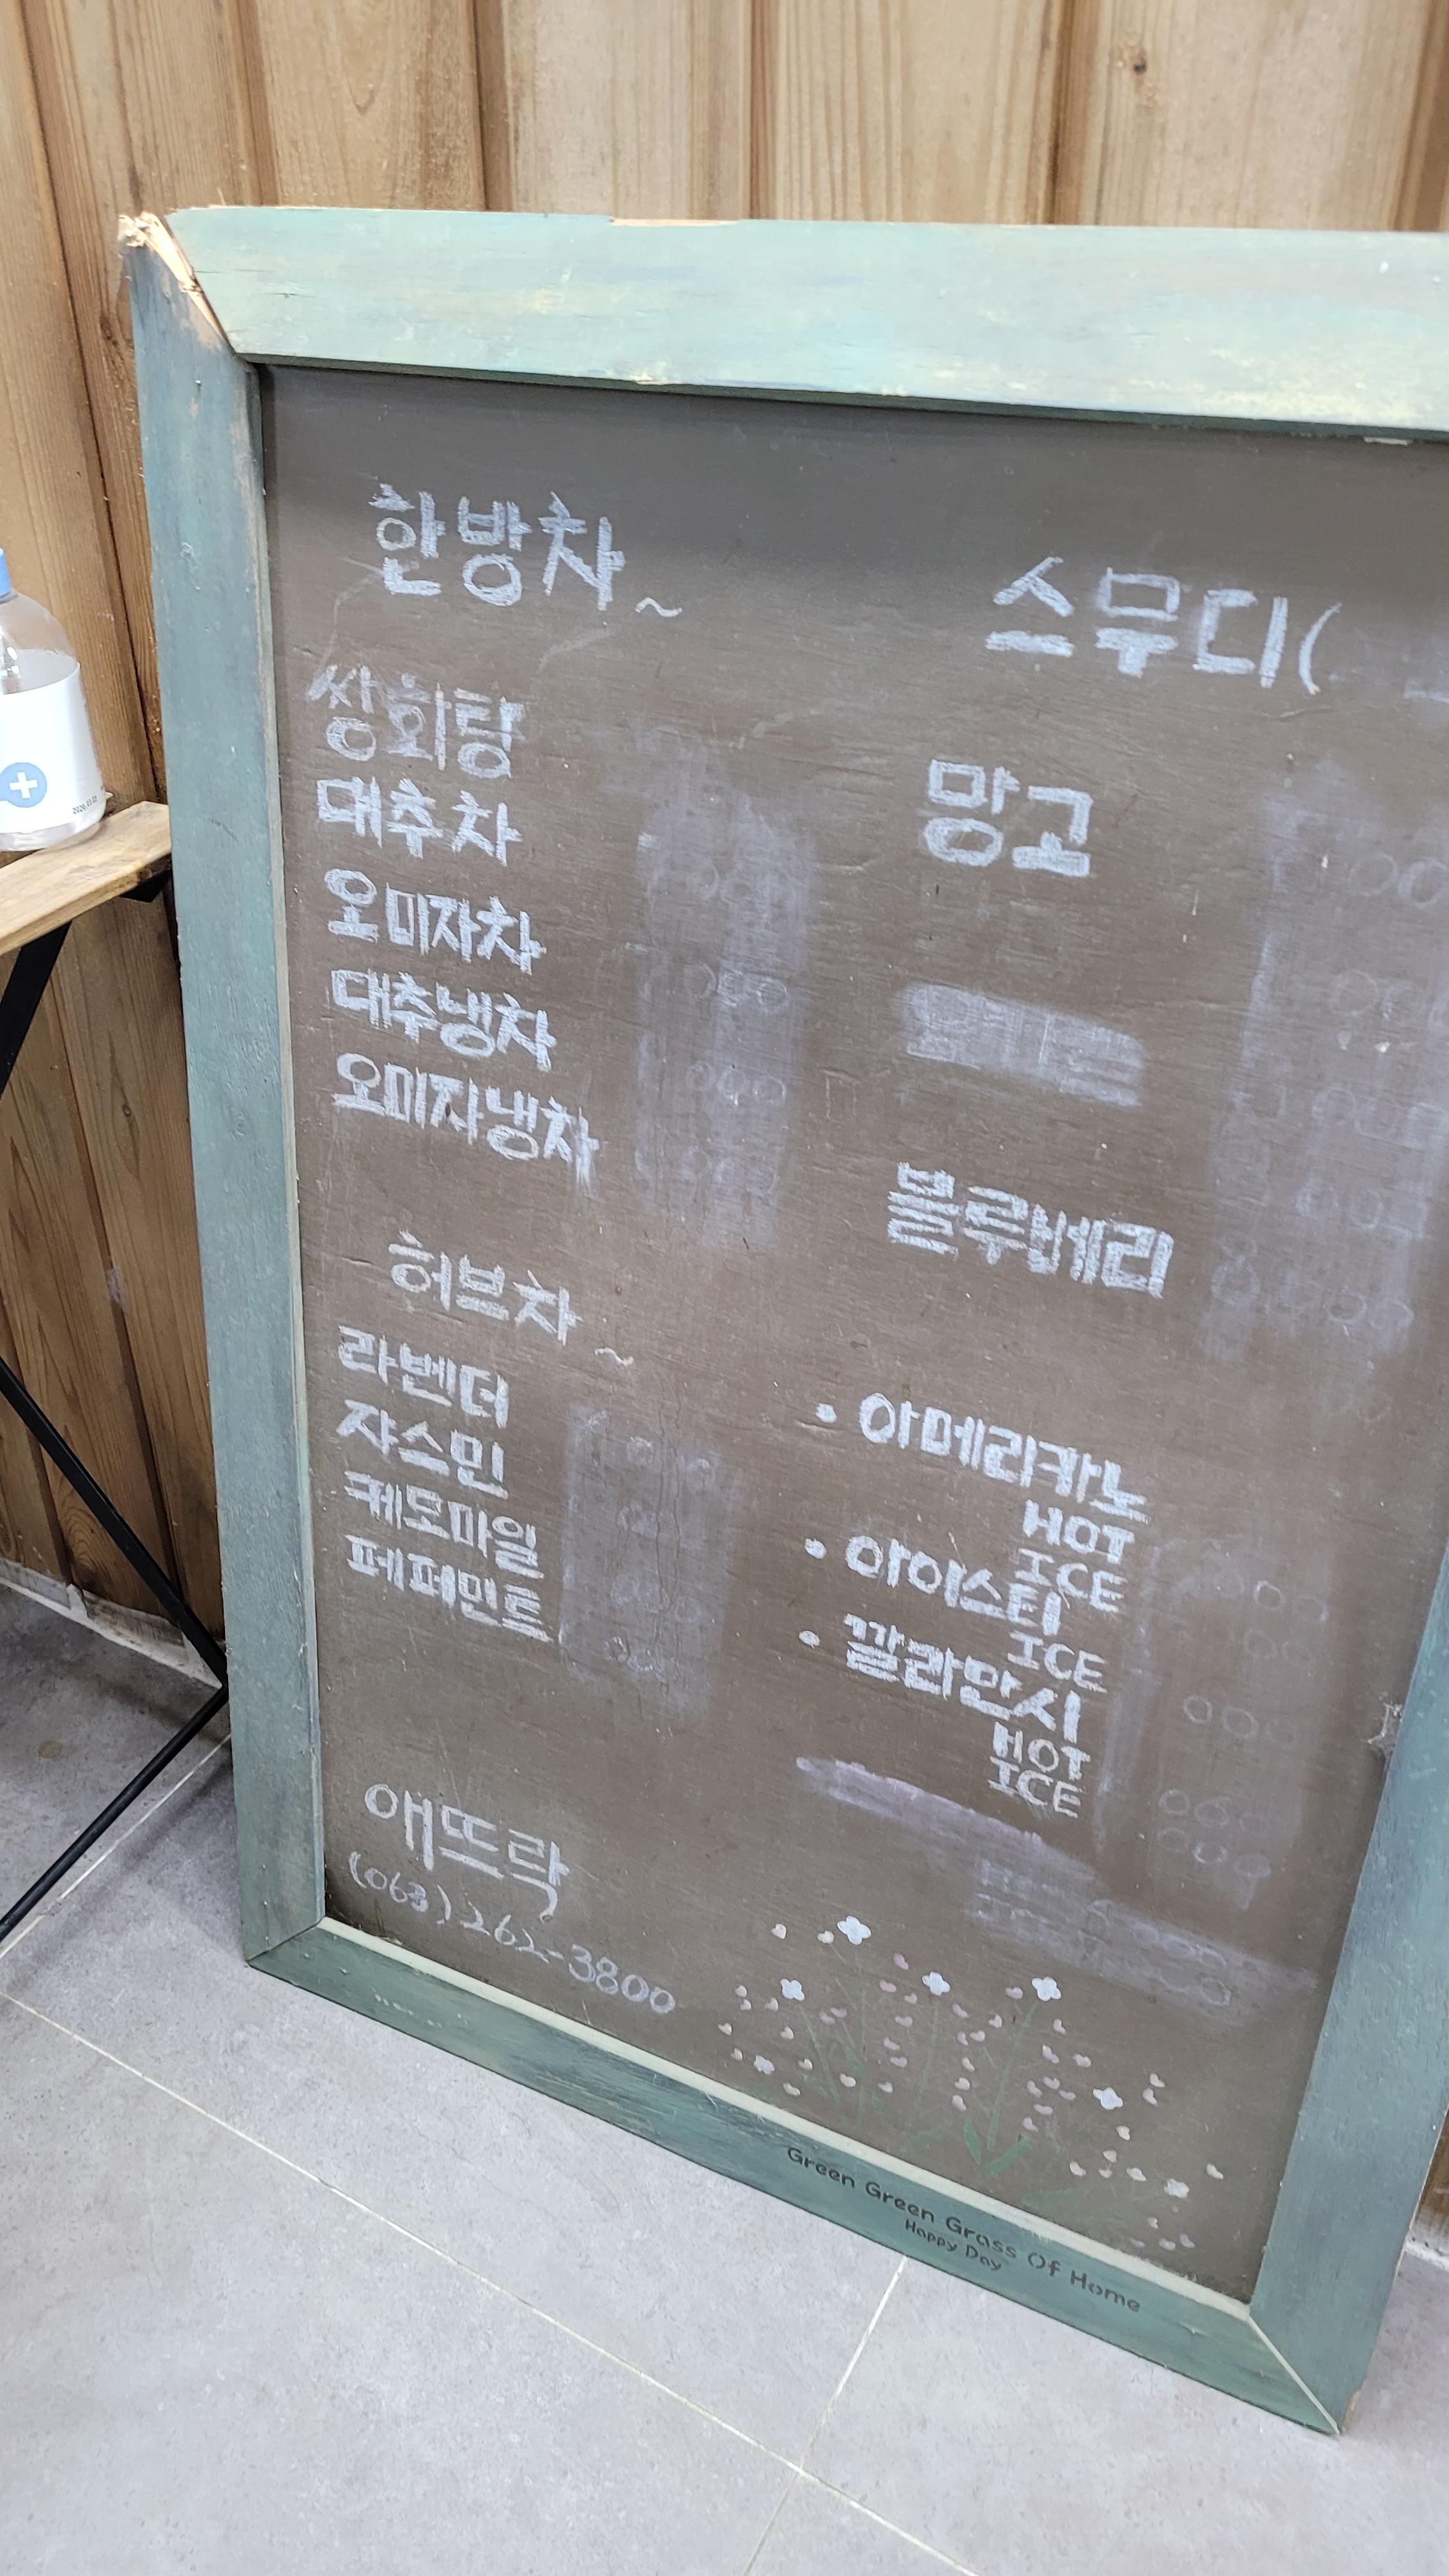 한방차~
쌍화탕
대추차
오미자차
대추냉차
오미자냉차
허브차~
라벤더
쟈스민
케모마일
페퍼민트
애뜨락
(063)262-3800
스무디(
망고
블루베리
• 아메리카노
HOT
ICE
• 아이스티
ICE
• 깔라만시
HOT
ICE
Green Green Grass Of Home
Happy Day